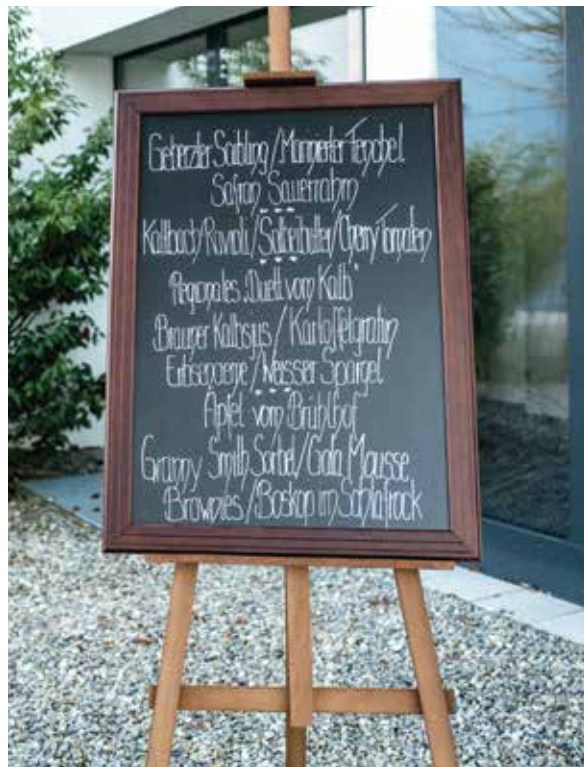 Gebeizter Saibling/Marinierter Fenchel
Safran Sauerrahm
Kaltbach Ravioli/Salbeibutter/Cherry Tomaten
Regionales „Duett vom Kalb“
Brauner Kalbsjus/Kartoffelgratin
/Weisser Spargel
Äpfel vom Brühlhof
Granny Smith Sorbet/Gala Mousse
Brownies/Boskop im Schlafrock